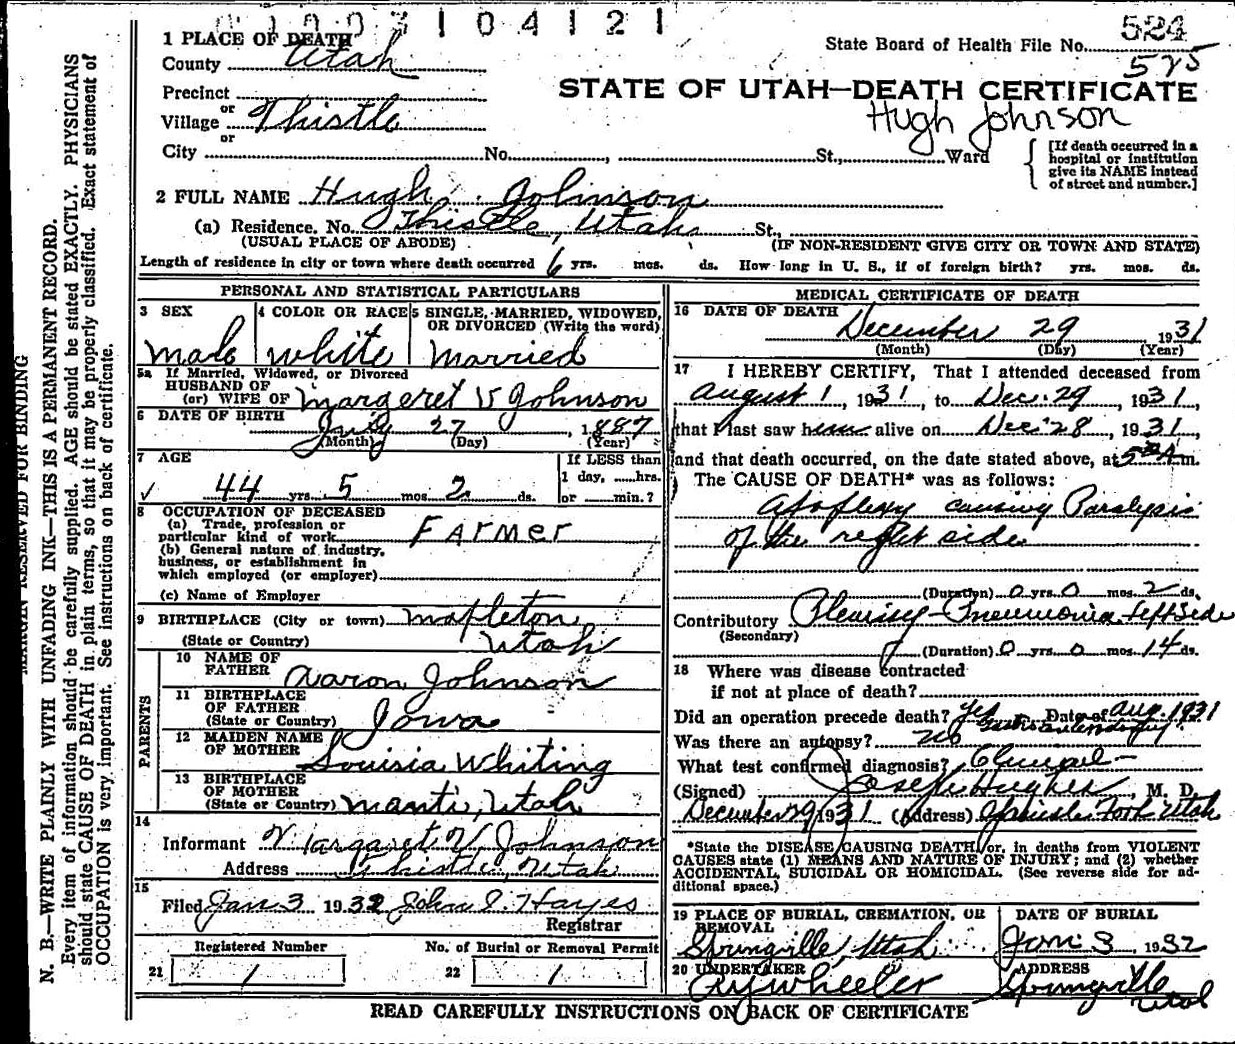 1003104121
1 PLACE OF DEATH
County Utah
Precinct
or
Village Thistle
or
City No. , St., Ward
State Board of Health File No. 524
525
STATE OF UTAH—DEATH CERTIFICATE
Hugh Johnson
[If death occurred in a hospital or institution give its NAME instead of street and number.]
2 FULL NAME Hugh Johnson
(a) Residence. No. Thistle, Utah St.,
(USUAL PLACE OF ABODE) (IF NON-RESIDENT GIVE CITY OR TOWN AND STATE)
Length of residence in city or town where death occurred 6 yrs. mos. ds. How long in U. S., if of foreign birth? yrs. mos. ds.
MARGIN RESERVED FOR BINDING
N. B.—WRITE PLAINLY WITH UNFADING INK—THIS IS A PERMANENT RECORD.
Every item of information should be carefully supplied. AGE should be stated EXACTLY. PHYSICIANS
should state CAUSE OF DEATH in plain terms, so that it may be properly classified. Exact statement of
OCCUPATION is very important. See instructions on back of certificate.
PERSONAL AND STATISTICAL PARTICULARS
3 SEX 4 COLOR OR RACE 5 SINGLE, MARRIED, WIDOWED,
OR DIVORCED (Write the word)
Male white Married
5a If Married, Widowed, or Divorced
HUSBAND OF
(or) WIFE OF Margeret V Johnson
6 DATE OF BIRTH
July 27, 1887
(Month) (Day) (Year)
7 AGE If LESS than
1 day, hrs.
44 yrs. 5 mos. 2 ds. or min.?
8 OCCUPATION OF DECEASED
(a) Trade, profession or
particular kind of work Farmer
(b) General nature of industry,
business, or establishment in
which employed (or employer)
(c) Name of Employer
9 BIRTHPLACE (City or town) Mapleton
(State or Country) Utah
PARENTS
10 NAME OF
FATHER Aaron Johnson
11 BIRTHPLACE
OF FATHER
(State or Country) Iowa
12 MAIDEN NAME
OF MOTHER Louisia Whiting
13 BIRTHPLACE
OF MOTHER
(State or Country) Manti, Utah
14
Informant Margaret V. Johnson
Address Thistle, Utah
15
Filed Jan 3 1932 John E. Hayes
Registrar
Registered Number No. of Burial or Removal Permit
21 1 22 1
MEDICAL CERTIFICATE OF DEATH
16 DATE OF DEATH
December 29 1931
(Month) (Day) (Year)
17 I HEREBY CERTIFY, That I attended deceased from
August 1, 1931, to Dec. 29, 1931,
that I last saw him alive on Dec. 28, 1931,
and that death occurred, on the date stated above, at 5 A m.
The CAUSE OF DEATH* was as follows:
Apoplexy causing Paralysis
of the right side
(Duration) 0 yrs. 0 mos. 2 ds.
Contributory Pleurisy-Pneumonia Left Side
(Secondary)
(Duration) 0 yrs. 0 mos. 14 ds.
18 Where was disease contracted
if not at place of death?
Did an operation precede death? Yes Date of Aug. 1931
Was there an autopsy? No
What test confirmed diagnosis?
(Signed) Joseph Hughes, M. D.
December 29, 1931 (Address) Spanish Fork Utah
*State the DISEASE CAUSING DEATH, or, in deaths from VIOLENT
CAUSES state (1) MEANS AND NATURE OF INJURY; and (2) whether
ACCIDENTAL, SUICIDAL OR HOMICIDAL. (See reverse side for ad-
ditional space.)
19 PLACE OF BURIAL, CREMATION, OR REMOVAL DATE OF BURIAL
Springville, Utah Jan 3, 1932
20 UNDERTAKER ADDRESS
A Y Wheeler Springville
Utah
READ CAREFULLY INSTRUCTIONS ON BACK OF CERTIFICATE